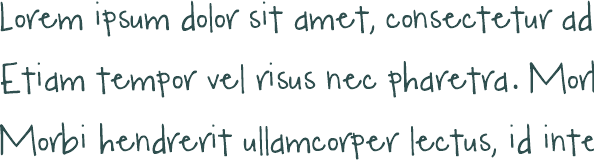 Lorem ipsum dolor sit amet, consectetur ad
Etiam tempor vel risus nec pharetra. Mor
Morbi hendrerit ullamcorper lectus, id inte